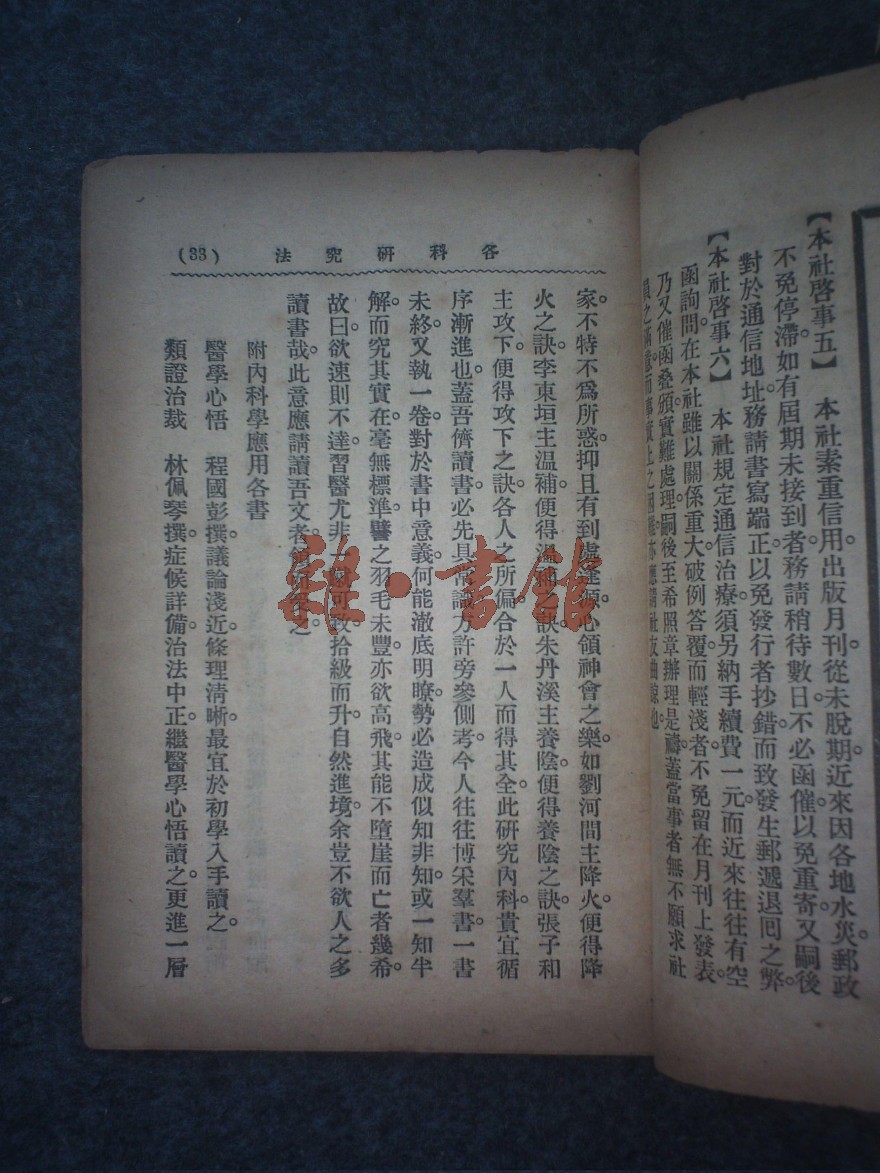 【本社啓事五】　本社素重信用出版月刊從未脫期近來因各地水災郵政
不免停滯如有屆期未接到者務請稍待數日不必函催以免重寄又嗣後
對於通信地址務請書寫端正以免發行者抄錯而致發生郵遞退回之弊。
【本社啓事六】　本社規定通信治療須另納手續費一元而近來往往有空
函詢問在本社雖以關係重大破例答覆而輕淺者不免留在月刊上發表。
乃又催函叠頒實難處理嗣後至希照章辦理是禱蓋當事者無不願求社
員之滿意而事實上之困難亦應請社友曲諒也
各科研究法
(33)
家。不特不爲所惑。抑且有到處逢源心領神會之樂。如劉河間主降火。便得降
火之訣。李東垣主温補。便得温補之訣。朱丹溪主養陰。便得養陰之訣。張子和
主攻下。便得攻下之訣。各人之所偏。合於一人而得其全。此研究內科。貴宜循
序漸進也。蓋吾儕讀書。必先具常識。方許旁參側考。今人往往博采羣書。一書
未終。又執一卷。對於書中意義。何能澈底明瞭。勢必造成似知非知。或一知半
解。而究其實在。毫無標準。譬之羽毛未豐。亦欲高飛。其能不墮崖而亡者幾希。
故曰。欲速則不達。習醫尤非一蹴可致。拾級而升。自然進境。余豈不欲人之多
讀書哉。此意應請讀吾文者之。
附內科學應用各書
醫學心悟　程國彭撰。議論淺近。條理清晰。最宜於初學入手讀之。
類證治裁　林佩琴撰。症候詳備。治法中正。繼醫學心悟讀之。更進一層
雜·書館